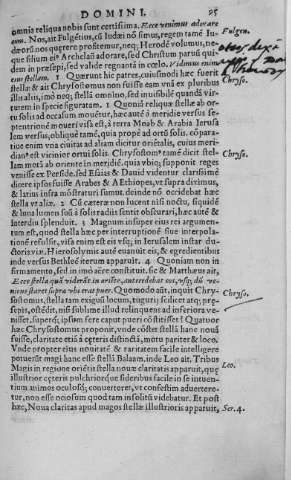 DOMINI. 95
omnia reliqua nobis sunt certissima. Ecce venimus adorare
eum. Nos, ait Fulgẽtius, cũ Iudæi nõ simus, regem tamẽ Iu-
dæorũ nos quęrere profitemur, neq; Herodẽ volumus, ne-
que filium eiꝰ Archelaũ adorare, sed Christum parũ qui-
dem in præsepi, sed valide regnantẽ in cœlo. Vidimus enim
eius stellam. 1 Quærunt hic patres, cuiusmodi hæc fuerit
stella: & ait Chrysostomus non fuisse eam vnã ex pluribus
stellis alijs, imò neq; stella omnino, sed inuisibilẽ quandã vir-
tutem in specie figuratam. 1 Quoniã reliquæ stellæ ab or-
tu solis ad occasum mouẽtur, hæc autẽ ò meridie versus se-
ptentrionẽ moueri visa est, à terra Moab & Arabia Ierusa-
lem versus, obliquè tamẽ, quia propè ad ortũ solis. cõpara-
tiue enim vna ciuitas ad aliam dicitur orientalis, cuius meri-
dianꝰ est vicinior ortui solis. Chrysostomꝰ tamẽ dicit stel-
lam motã ab oriente in meridiẽ. quia vbiq; supponit reges
venisse ex Perside, sed Esaias & Dauid videntur clarissimè
dicere ipsos fuisse Arabes & AEthiopes, vt supra diximus,
& latius infra mõstraturi sumus, deinde nõ occidebat hæc
stella vt aliæ. 2 Cũ cæteræ non lucent nisi noctu, siquidẽ
& luca lumen suũ à solis radijs sentit obscurari, hæc autẽ &
interdiu splenduit. 3 Magnum insuper eius rei argumen-
tum est, quod stella hæc per interruptionẽ siue interpola-
tionẽ refulsit, visa enim est eis vsq; in Ierusalem instar du-
ctoris viæ, Hierosolymis autẽ euanuit eis, & egredientibus
inde versus Bethleẽ iterum apparuit. 4 Quoniam non in
firmamento, sed in imo aëre constitit. sic & Matthæus ait,
Ecce stella quã viderãt in oriẽte, antecedebat eos, vsq; dũ ve-
niens staret supra vbi erat puer. Quomodo aũt, inquit Chry-
sostomus, stella tam exiguũ locum, tugurij scilicet atq; præ-
sepis, ostẽdit, nisi sublime illud relinquens ad inferiora ve-
nisset, superq; ipsum ferè caput pueri cõstitisset? Quatuor
hæc Chrysostomus proponit, vnde cõstet stellã hanc nouã
fuisse, claritate etiã à cęteris distinctã, motu pariter & loco.
Vnde propter eius nouitatẽ & raritatem facile intelligere
potuerũt magi hanc esse stellã Balaam. inde Leo ait, Tribus
Magis in regione oriẽtis stella nouæ claritatis apparuit, quæ
illustrior cęteris pulchriorque sideribus facile in se intuen-
tium animos oculosq; conuerteret, vt confestim aduertere-
tur, non esse ociosum quod tam insolitũ videbatur. Et post
hæc, Noua claritas apud magos stellæ illustrioris apparuit,
Fulgen.
Chryso.
Chryso.
Chryso.
Leo.
Ser. 4.